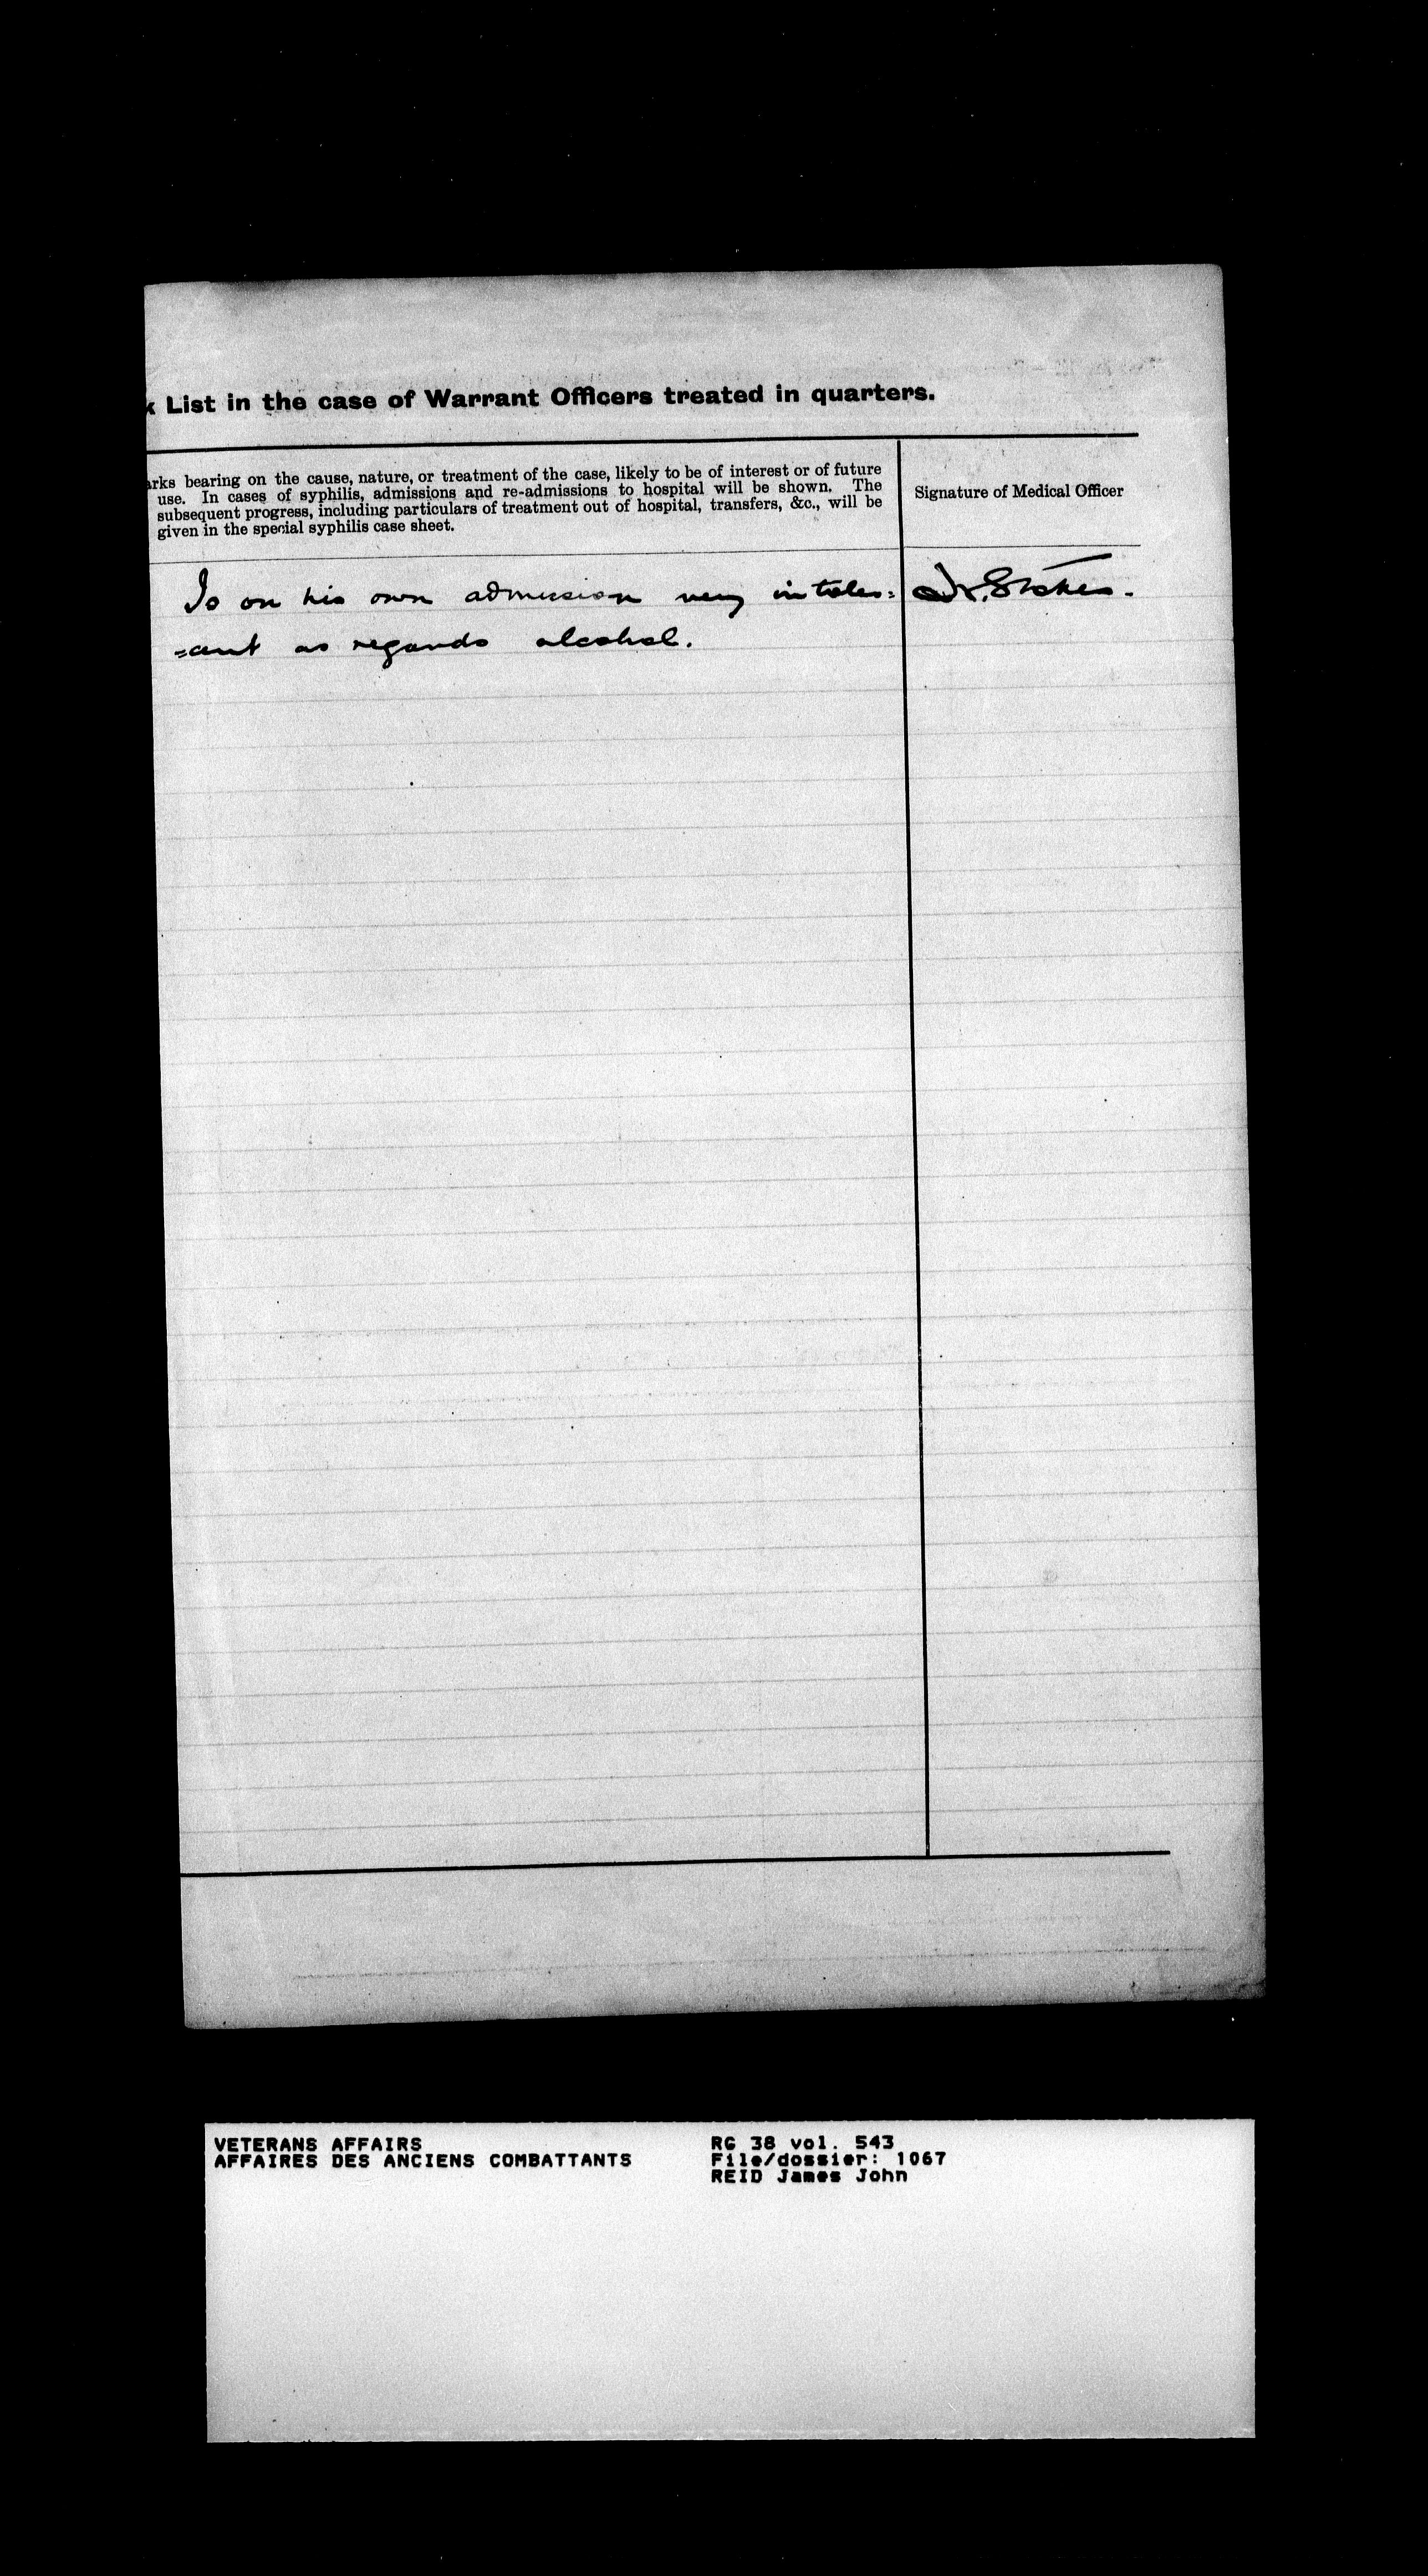 k List in the case of Warrant Officers treated in quarters.
arks bearing on the cause, nature, or treatment of the case, likely to be of interest or of future
use. In cases of syphilis, admissions and re-admissions to hospital will be shown. The
subsequent progress, including particulars of treatment out of hospital, transfers, &c., will be
given in the special syphilis case sheet.
Signature of Medical Officer
Is on his own admission very intoler=
=ant as regards alcohol.
Stokes.
VETERANS AFFAIRS
AFFAIRES DES ANCIENS COMBATTANTS
RG 38 vol. 543
File/dossier: 1067
REID James John